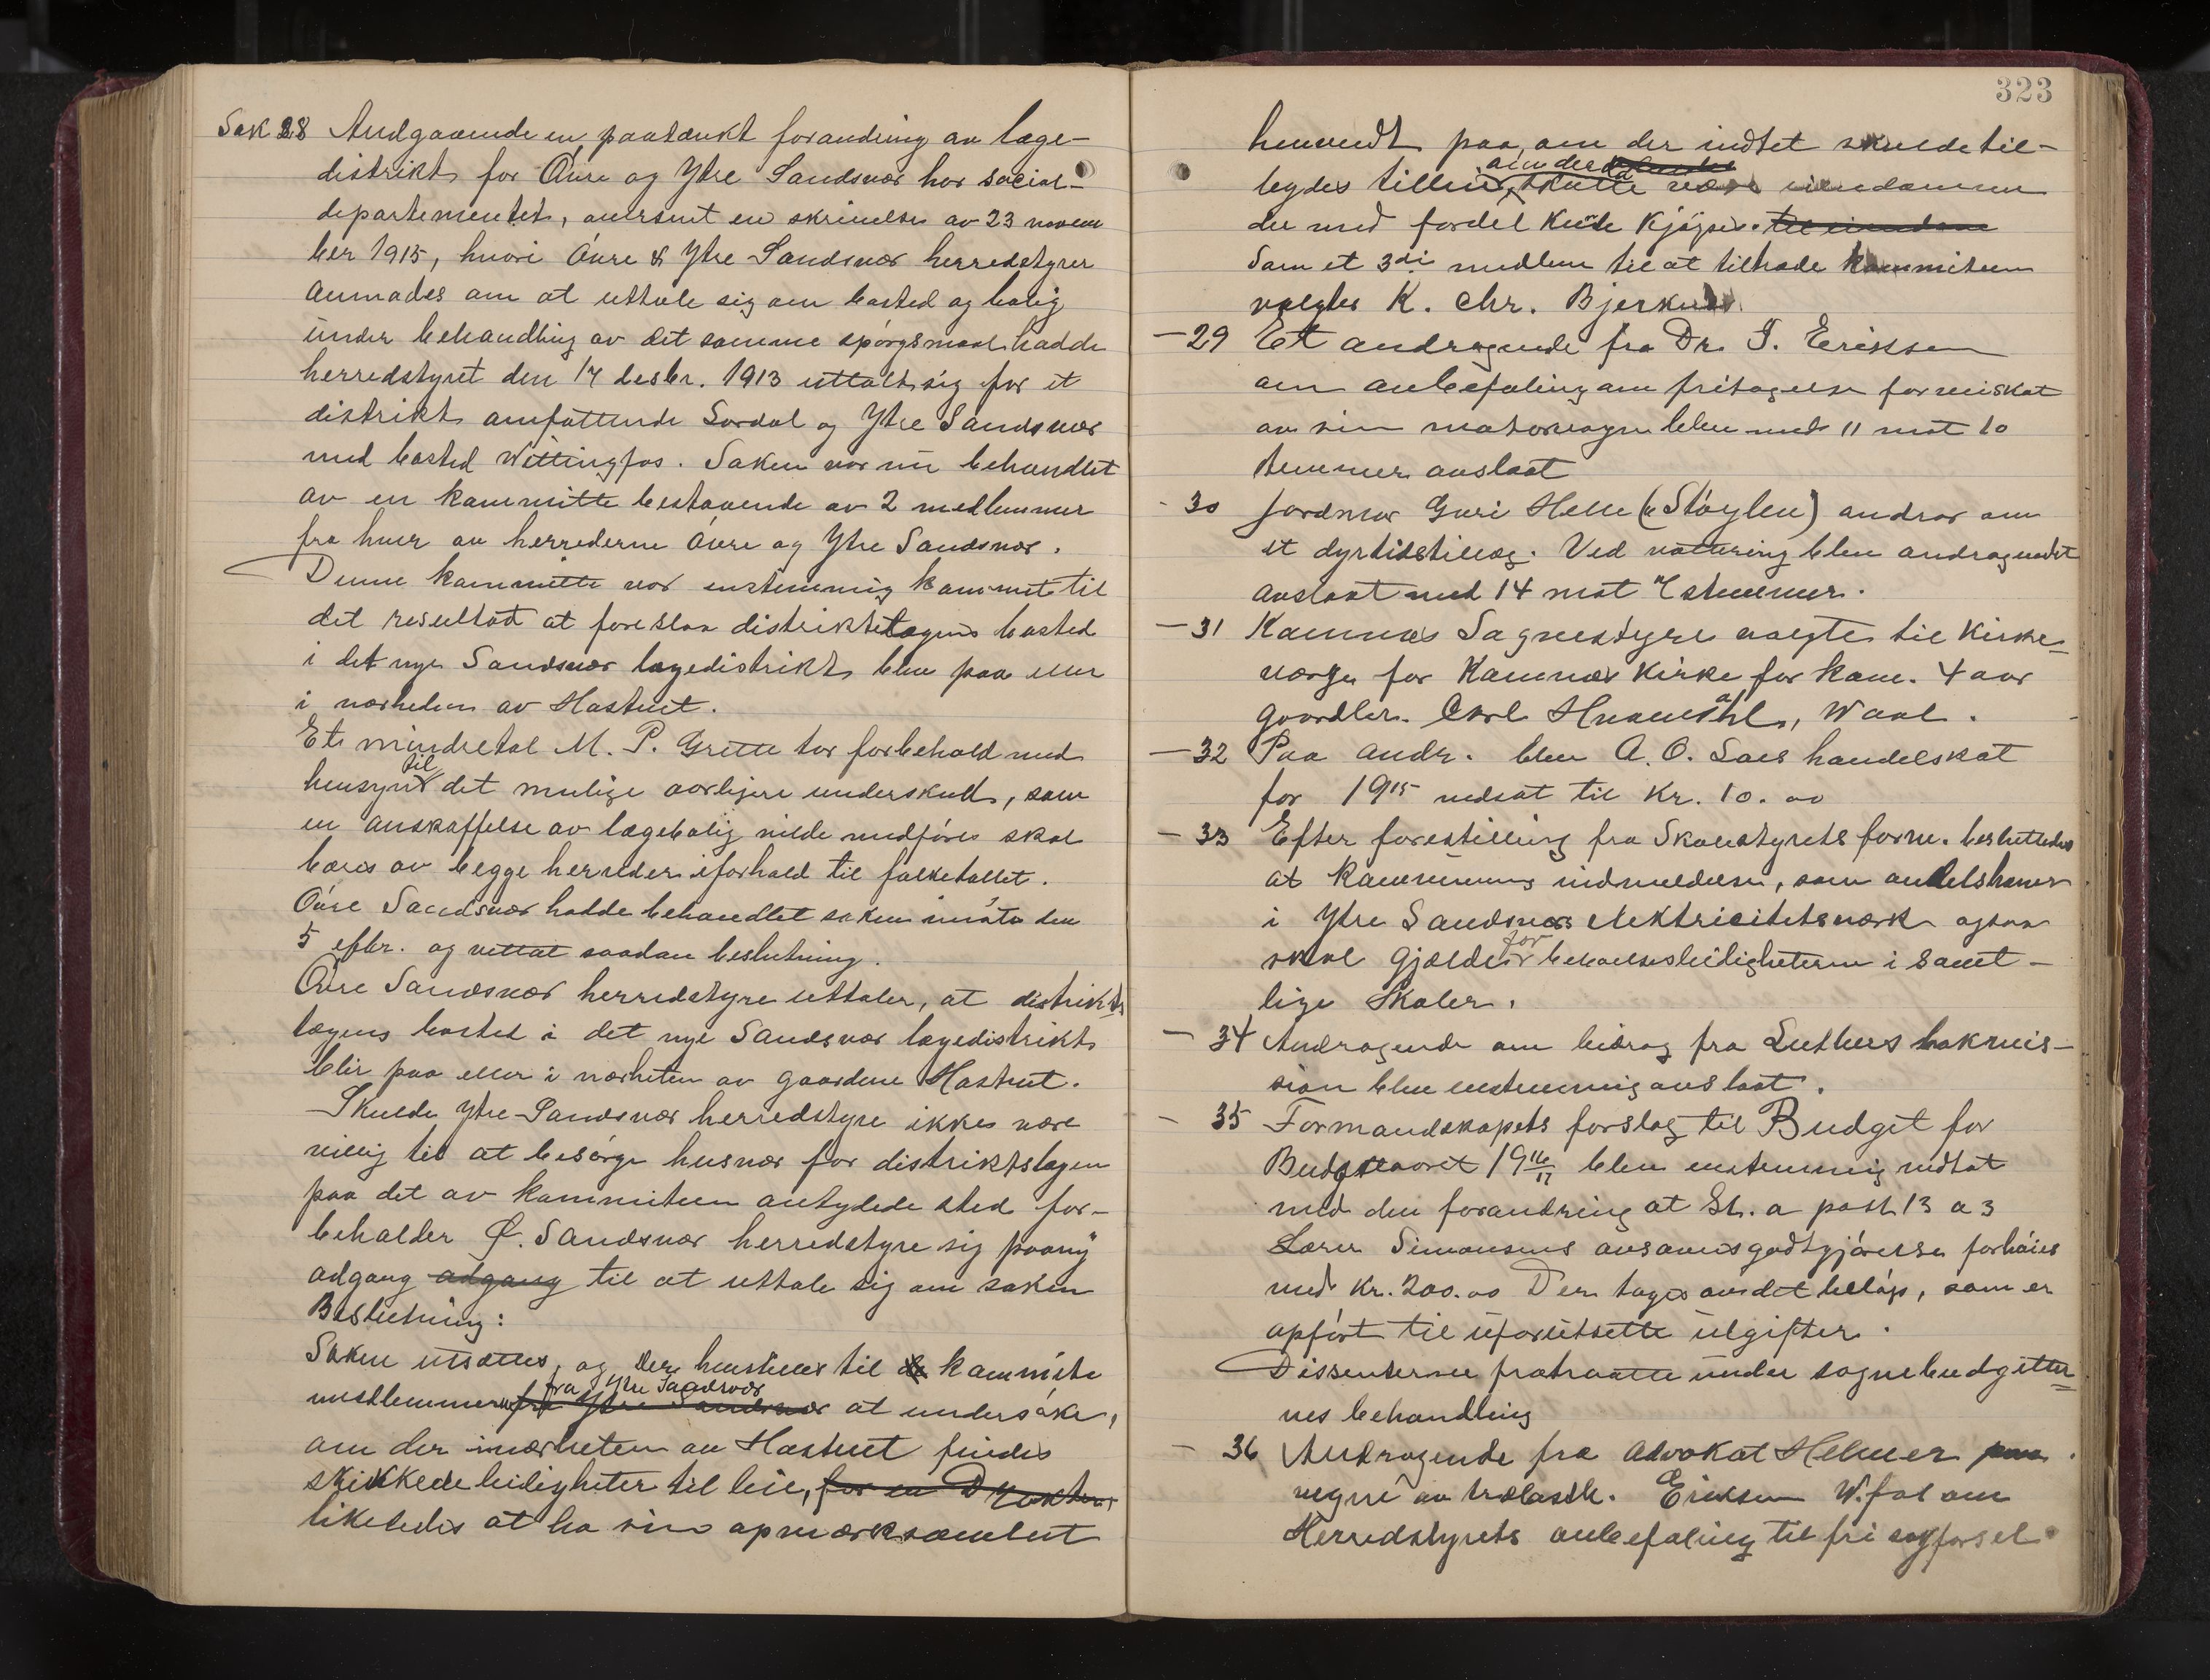 Sak 28 Andgaaende en paatænkt forandring av læge-
distrikt for Øvre og Ytre Sandsvær har social-
departementet, oversent en skrivelse av 23 novem
ber 1915, hvori Øvre & Ytre Sandsvær herredstyrer
anmodes om at uttale sig om bosted og bolig
under behandling av det samme spørgsmaal hadde
herredstyret den 17 desbr. 1913 uttalt sig for et
distrikt omfattende Sordal og Ytre Sandsvær
med bosted Wittingfos. Saken var nu behandlet
av en kommitte bestaaende av 2 medlemmer
fra hver av herrederne Øvre og Ytre Sandsvær.
Denne kommitte var enstemmig kommet til
det resultat at foreslaa distriktslægens bosted
i det nye Sandsvær lægedistrikt blev paa eller
i nærheden av Hastvet.
Et mindretal M. P. Grette tar forbehold med
hensyn til det mulige aarlige underskud, som
en anskaffelse av lægebolig vilde medføre skal
bæres av begge herreder i forhold til folketallet.
Øvre Sandsvær hadde behandlet saken i møte den
5 og vettat saadan beslutning.
Øvre Sandsvær herredstyre uttaler, at distrikts
lægens bosted i det nye Sandsvær lægedistrikt
blir paa eller i nærheten av gaardene Hastvet.
Skulde Ytre Sandsvær herredstyre ikke være
villig til at besørge husvær for distriktslægen
paa det av kommiteen antydede sted for-
beholder Ø. Sandsvær herredstyre sig paany
adgang adgang til at uttale sig om saken
Beslutning:
Saken utsættes, og der henstilles til de kommite
fra Ytre Sandsvær
medlemmer fra Ytre Sandsvær at undersøke,
om der i nærheten av Hastvet findes
skikkede leiligheter til leie, for en Doktor
likeledes at ha sin opmærksomhet
323
henvendt paa, om der indtet skulde til-
bydes tilleie, skulde være eiendommer
der med fordel kunde kjøpes. til eiendom
Som et 3di medlem til at tiltræde kommiteen
valgtes K. Chr. Bjerknes.
- 29 Et andragende fra Dr. J. Erikssen
om anbefaling om fritagelse for veiskat
av sin motorvogn blev med 11 mot 10
stemmer avslaat
- 30 Jordmor Guri Helle (Støylen) andrar om
et dyrtidstillæg. Ved votering blev andragendet
avslaat med 14 mot 7 stemmer.
- 31 Komnes Sognestyre valgte til Kirke-
værge for Komnes Kirke for kom. 4 aar
gaardbr. Carl Hvaal, Waal.
- 32 Paa andr. blev A. O. Laes handelskat
for 1915 nedsat til Kr. 10.00
- 33 Efter forestilling fra Skolestyrets form. besluttedes
at kommunens indmeldelse, som andelshaver
i Ytre Sandsværs elektricitetsverk ogsaa
for
skal gjælde beboelsesleiligheterne i samt-
lige Skoler.
- 34 Andragende om bidrag fra Luthers bokmis-
sion blev enstemmig avslaat.
- 35 Formandskapets forslag til Budget for
Budgetaaret 19 16/17 blev enstemmig vedtat
med den forandring at St. a post 13 a 3
Lærer Simonsens avsavnsgodtgjørelse forhøies
med Kr. 200.00 Der tages av det beløp, som er
opført til uforutsette utgifter.
Dissenterne fratraatte under sognebudgetter
nes behandling
- 36 Andragende fra advokat Helmer paa
vegne av trælastk. Eriksen W.fos om
Herredstyrets anbefaling til fri